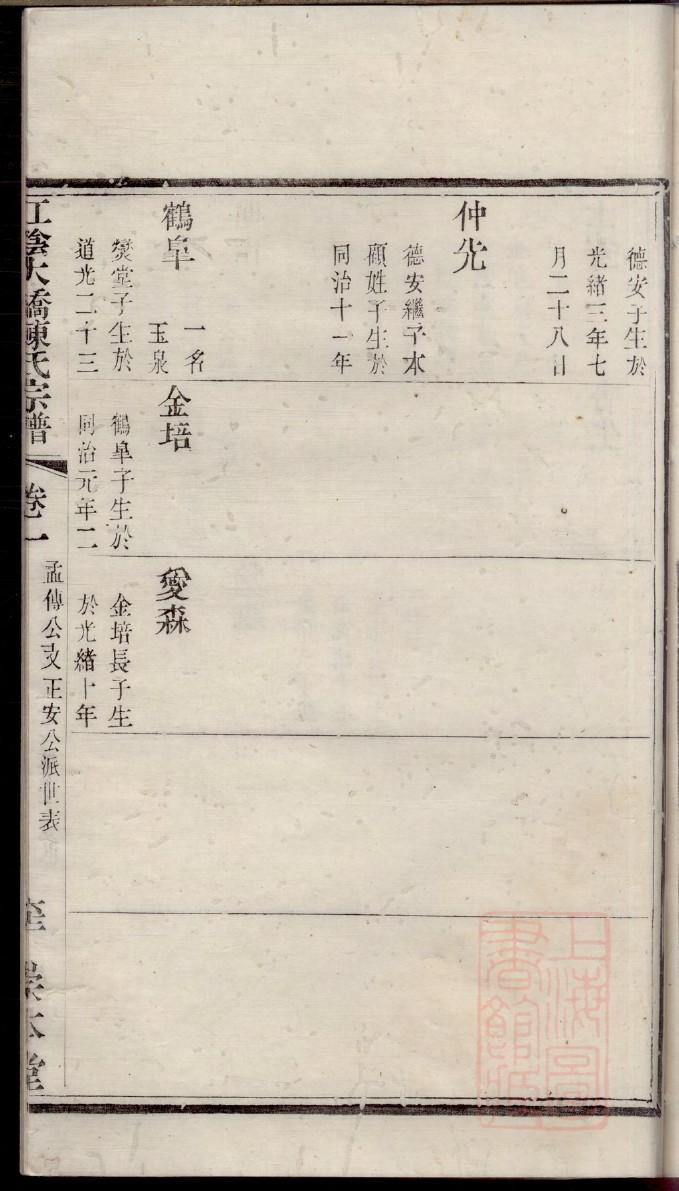 德安子生於
光緒三年七
月二十八日
仲光
德安繼子本
顧姓子生於
同治十一年
鶴皐
一名
玉泉
燮堂子生於
道光二十三
金培
鶴皐子生於
同治元年二
愛森
金培長子生
於光緒十年
江陰大橋陳氏宗譜
卷一
孟傳公支正安公派世表
崇本堂
上海圖書館藏